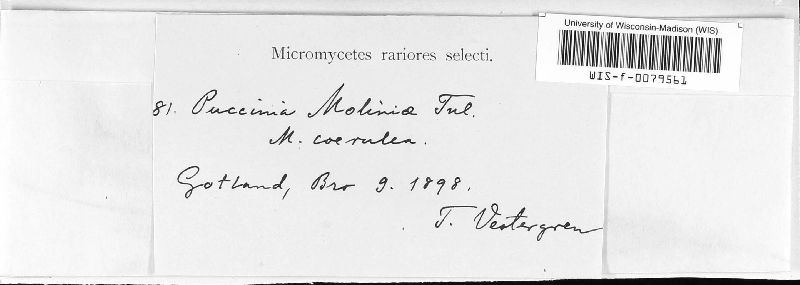 University of Wisconsin-Madison (WIS)
WIS-f-0079561
Micromycetes rariores selecti.
81. Puccinia Moliniæ Tul.
M. coerulea.
Gotland, Bro 9. 1898.
T. Vestergren